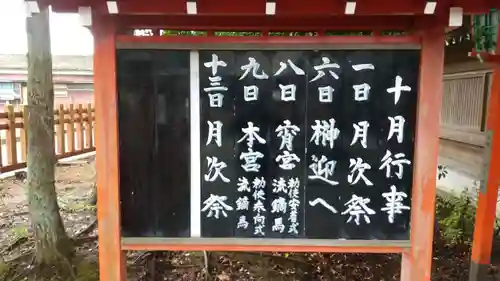 十月行事
一日 月次祭
六日 榊迎へ
八日 宵宮 勅使安着式 流鏑馬
九日 本宮 勅使奉向式 流鏑馬
十三日 月次祭